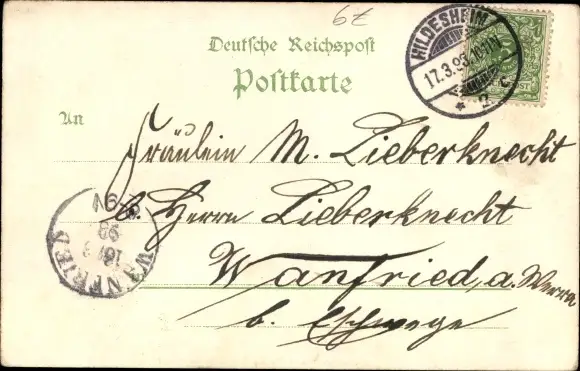 6€
Deutsche Reichspost
Postkarte
HILDESHEIM
17.3.98
* 2 c
An
Fräulein M. Lieberknecht
b. Herrn Lieberknecht
Wanfried, a. Werra
b. Eschwege
WANFRIED
98